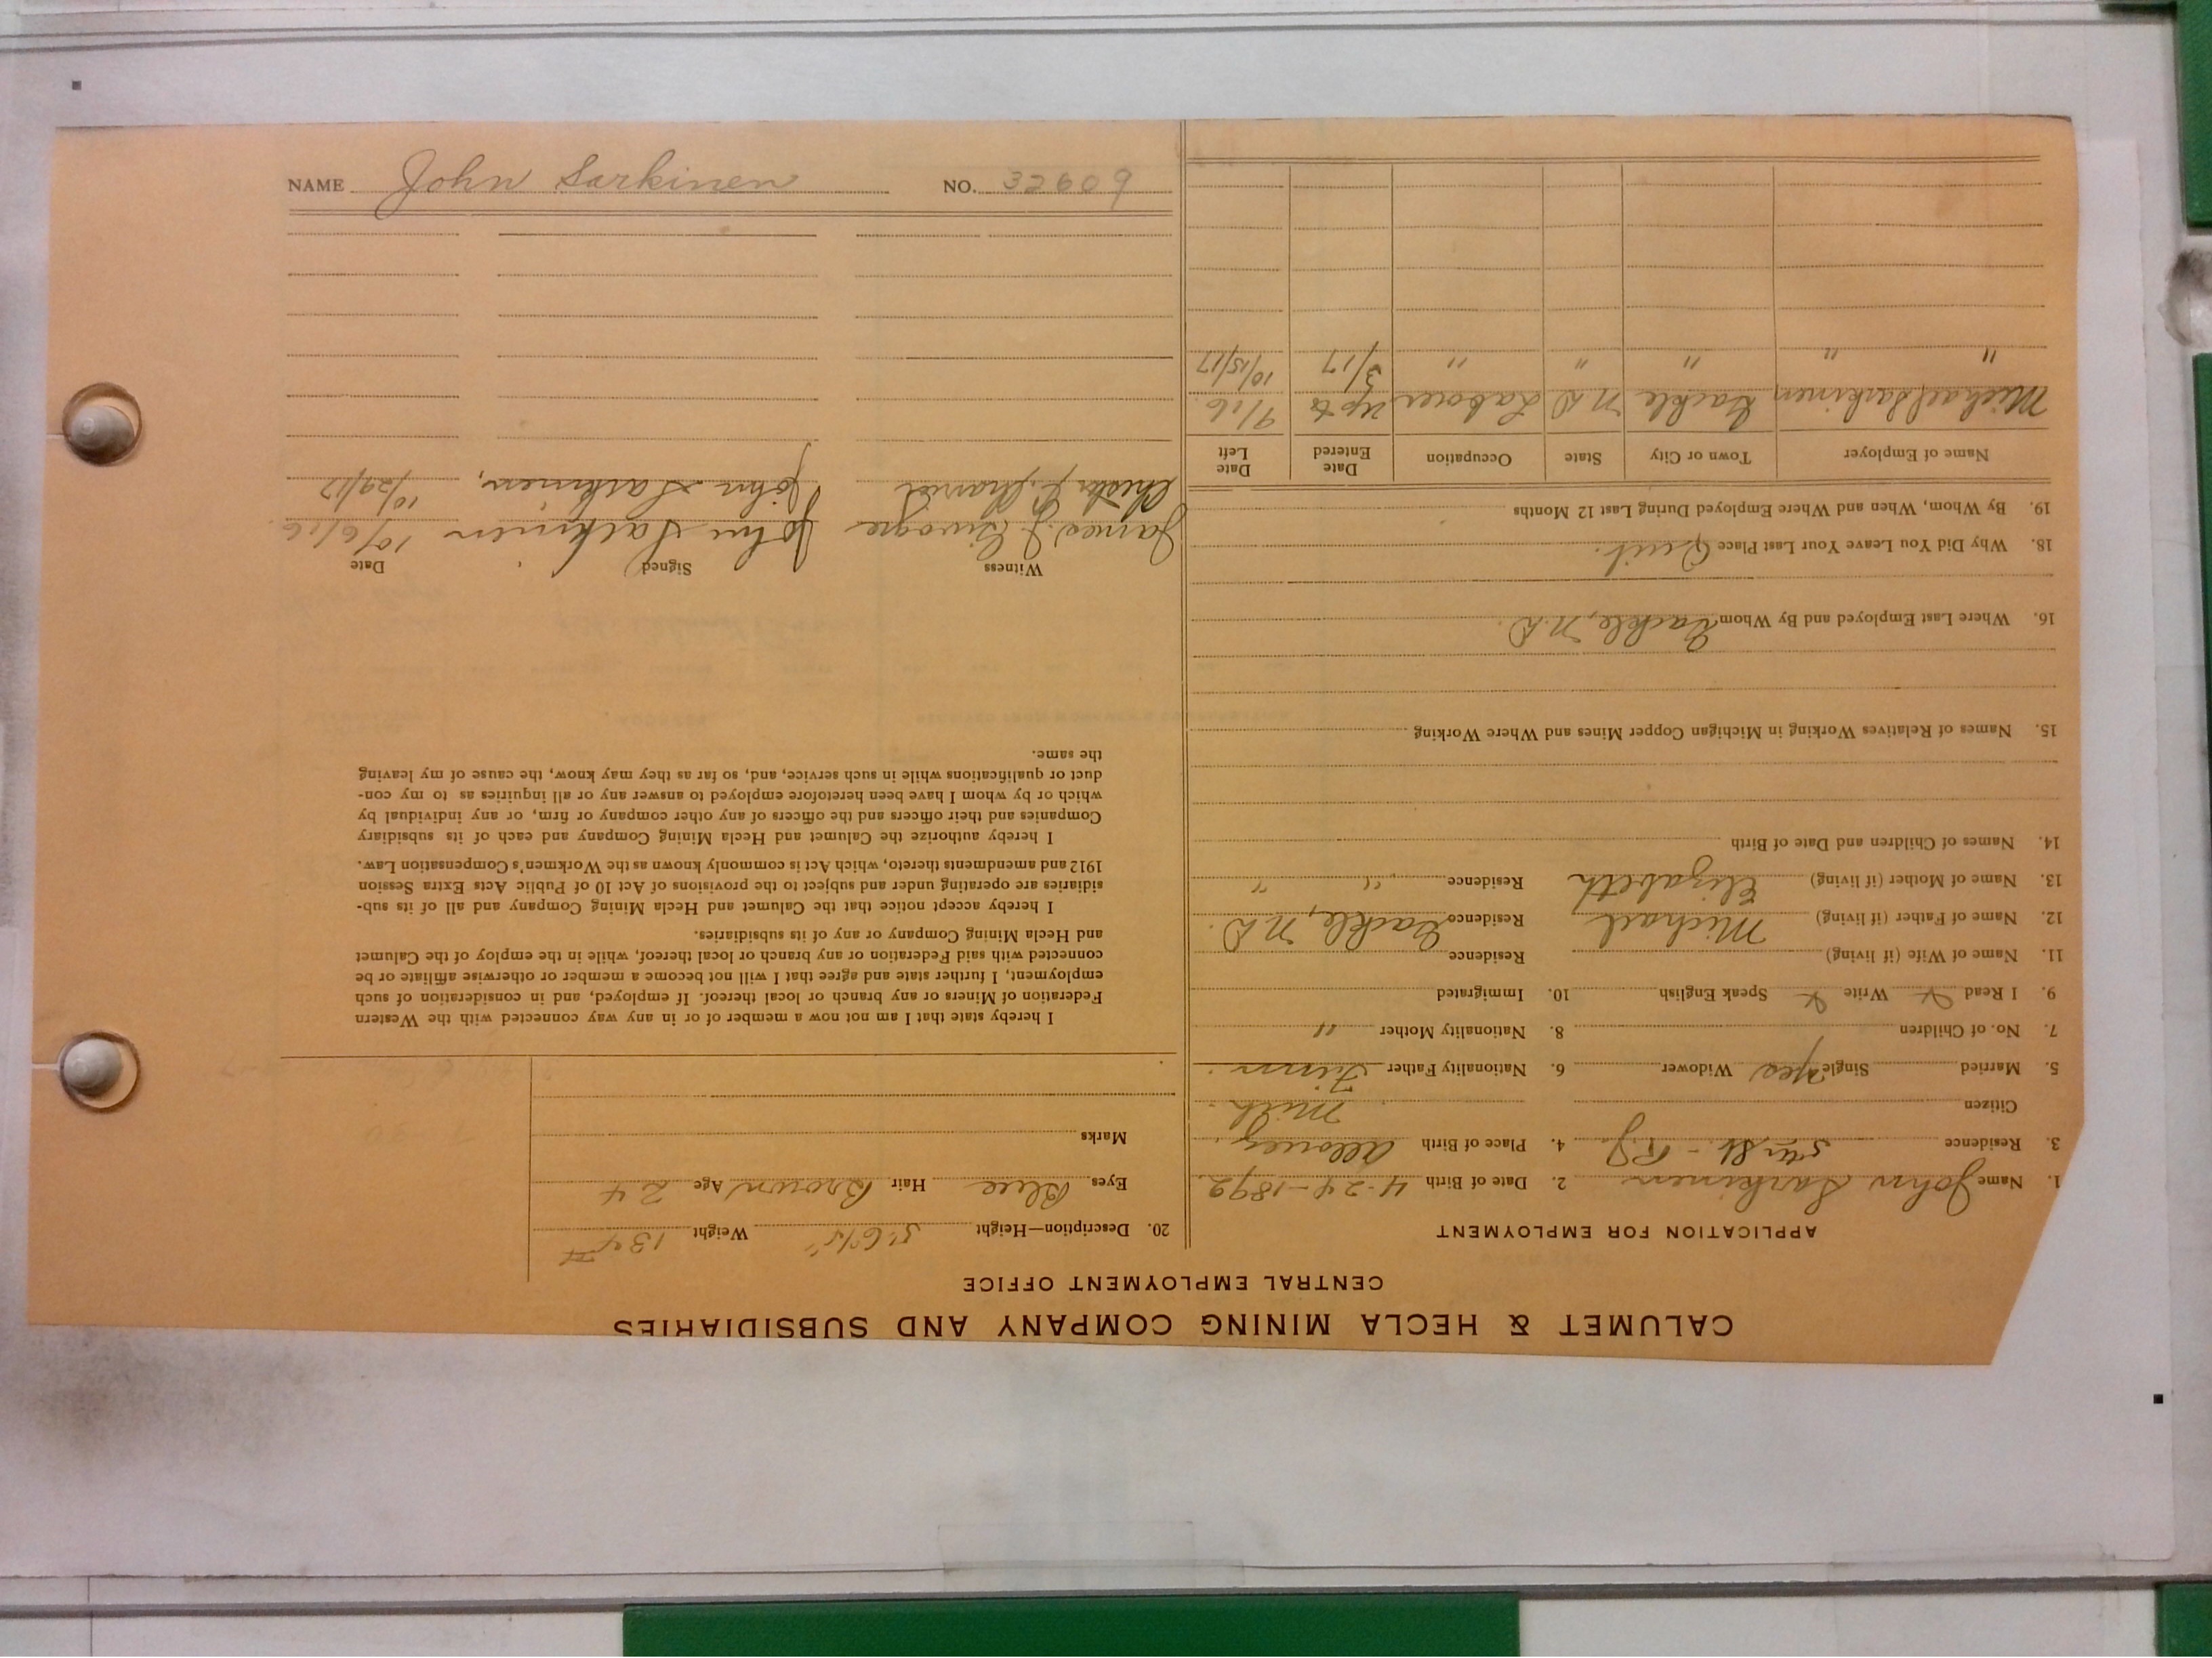 CALUMET & HECLA MINING COMPANY AND SUBSIDIARIES
CENTRAL EMPLOYMENT OFFICE
APPLICATION FOR EMPLOYMENT
1. Name John Sarkinen 2. Date of Birth 4-24-1892
3. Residence 5th St. - R.J. 4. Place of Birth Allouez,
Citizen Mich.
5. Married Single Yes Widower 6. Nationality Father Finn
7. No. of Children 8. Nationality Mother "
9. I Read Write Speak English 10. Immigrated
11. Name of Wife (if living) Residence
12. Name of Father (if living) Michael Residence Gackle, N.D.
13. Name of Mother (if living) Elizabeth Residence " "
14. Names of Children and Date of Birth
15. Names of Relatives Working in Michigan Copper Mines and Where Working
16. Where Last Employed and By Whom Gackle, N.D.
18. Why Did You Leave Your Last Place Quit.
19. By Whom, When and Where Employed During Last 12 Months
Name of Employer Town or City State Occupation Date Entered Date Left
Michael Sarkinen, Gackle N D Laborer up to 9/16
" " " " " 3/17 10/15/17
20. Description—Height Weight 134#
Eyes Blue Hair Brown Age 24
Marks
I hereby state that I am not now a member of or in any way connected with the Western
Federation of Miners or any branch or local thereof. If employed, and in consideration of such
employment, I further state and agree that I will not become a member or otherwise affiliate or be
connected with said Federation or any branch or local thereof, while in the employ of the Calumet
and Hecla Mining Company or any of its subsidiaries.
I hereby accept notice that the Calumet and Hecla Mining Company and all of its sub-
sidiaries are operating under and subject to the provisions of Act 10 of Public Acts Extra Session
1912 and amendments thereto, which Act is commonly known as the Workmen's Compensation Law.
I hereby authorize the Calumet and Hecla Mining Company and each of its subsidiary
Companies and their officers and the officers of any other company or firm, or any individual by
which or by whom I have been heretofore employed to answer any or all inquiries as to my con-
duct or qualifications while in such service, and, so far as they may know, the cause of my leaving
the same.
Witness Signed Date
James J. John Sarkinen 10/6/16
Chester John Sarkinen, 10/29/17
NAME John Sarkinen NO. 32609